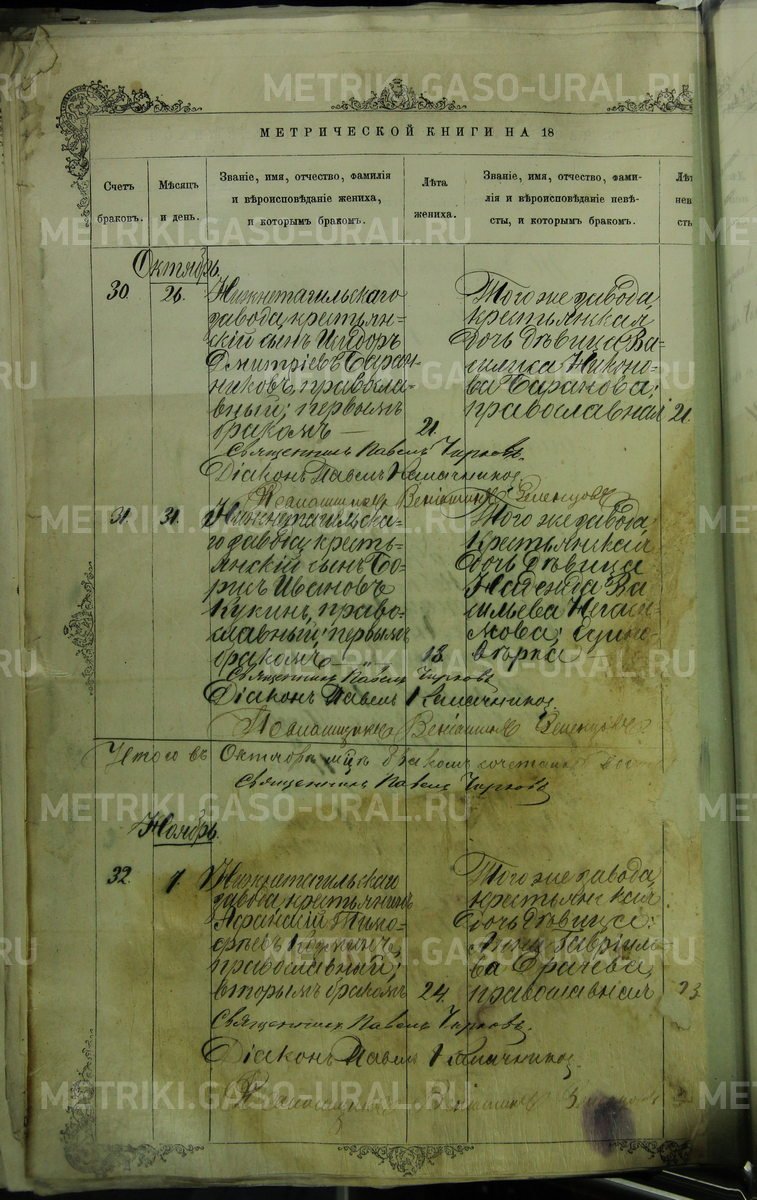 METRIKI.GASO-URAL.RU
МЕТРИЧЕСКОЙ КНИГИ НА 18
Счетъ браковъ.
Мѣсяцъ и день.
Званіе, имя, отчество, фамилія
и вѣроисповѣданіе жениха,
и которымъ бракомъ.
Лѣта
жениха.
Званіе, имя, отчество, фами-
лія и вѣроисповѣданіе невѣ-
сты, и которымъ бракомъ.
Лѣт
нев
сть
Октябрь.
30.
26.
Нижнетагильскаго
завода, крестьян-
скій сынъ Исидоръ
Дмитріевъ Баран-
никовъ, правосла-
вный; первымъ
бракомъ
21.
Того же завода,
крестьянская
дочь дѣвица Ва-
силиса Никоно-
ва Баранова;
православная
21.
Священникъ Павелъ Чирковъ.
Діаконъ Павелъ
Псаломщикъ Веніаминъ Зеленцовъ
31.
31.
Нижнетагильска-
го завода, кресть-
янскій сынъ Бо-
рисъ Ивановъ
Кукинъ, право-
славный; первымъ
бракомъ
18.
Того же завода,
крестьянская
дочь дѣвица
Надежда Ва-
сильева
едино-
вѣрка
Священникъ Павелъ Чирковъ
Діаконъ Павелъ
Псаломщикъ Веніаминъ Зеленцовъ
Итого въ Октябрѣ мцѣ бракомъ сочетано
Священникъ Павелъ Чирковъ
Ноябрь.
32.
1.
Нижнетагильскаго
завода, крестьянинъ
Тимо-
ѳеевъ
православный;
вторымъ бракомъ
24.
Того же завода,
крестьянская
дочь дѣвица
Анна Гавріило-
ва
православная
23
Священникъ Павелъ Чирковъ.
Діаконъ Павелъ
Псаломщикъ Веніаминъ